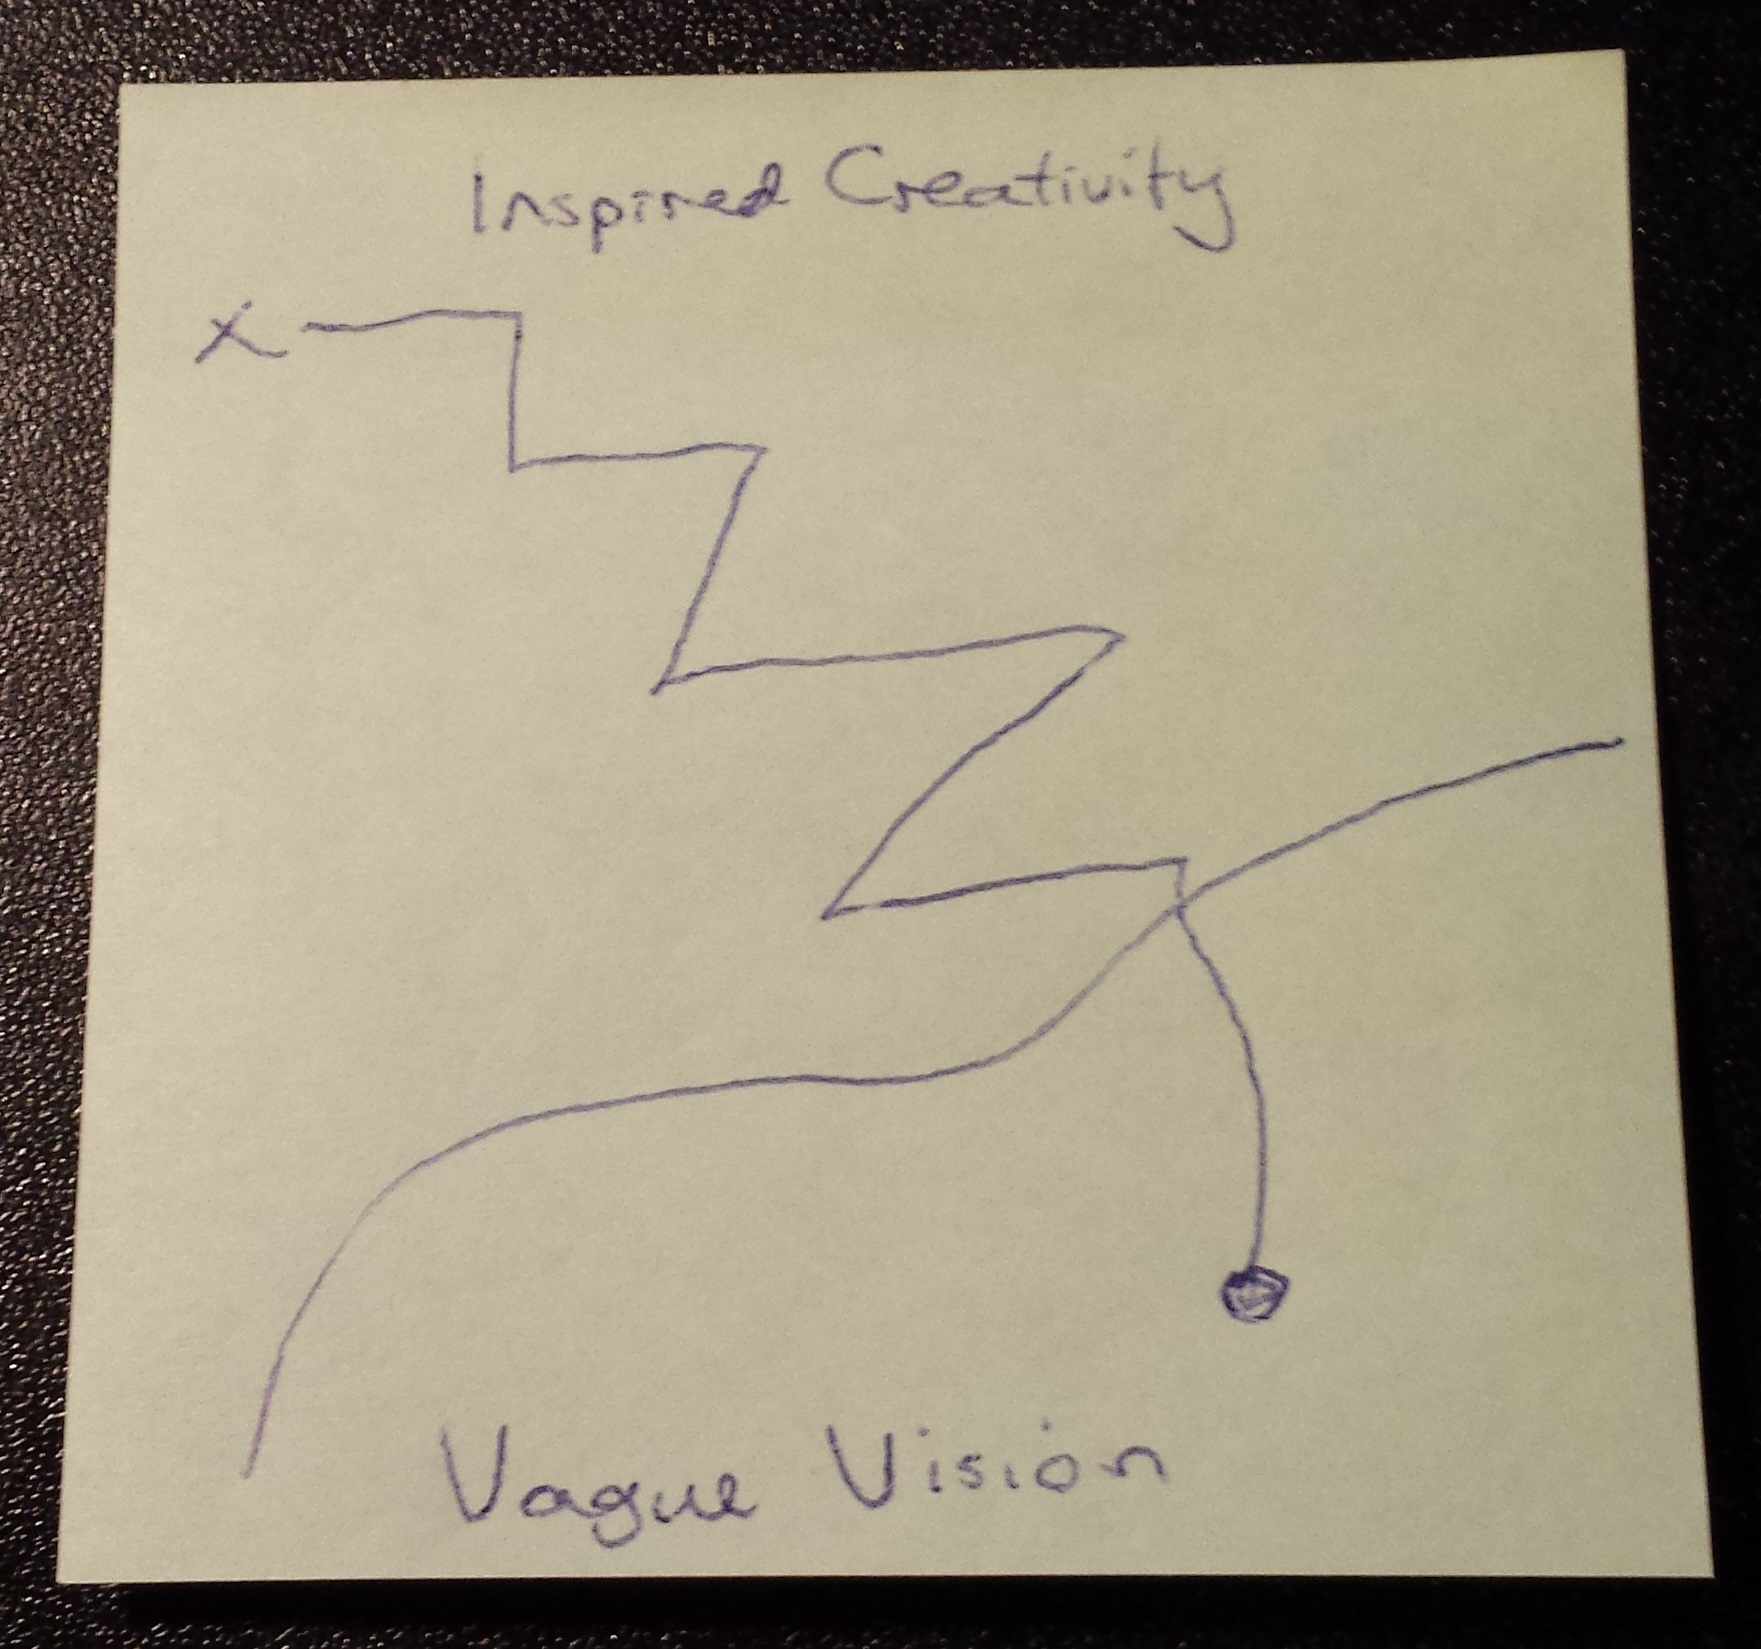 Inspired Creativity
X
Vague Vision